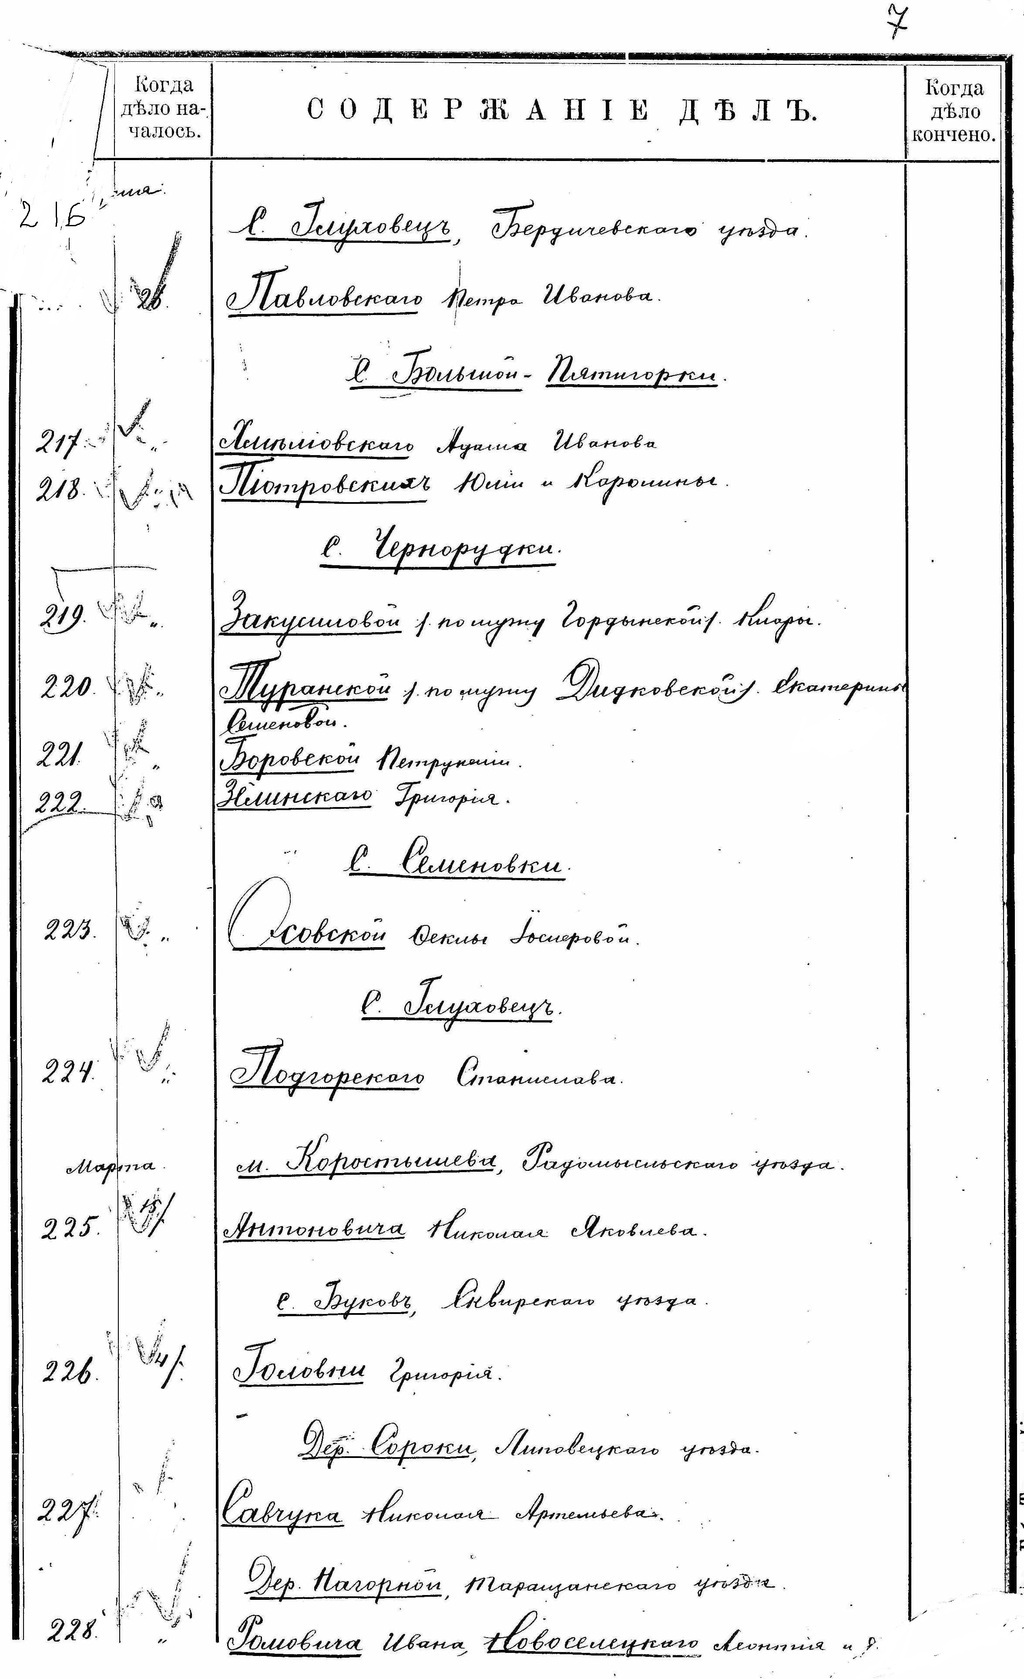 7
Когда дѣло началось.
СОДЕРЖАНІЕ ДѢЛЪ.
Когда дѣло кончено.
216
С. Глуховецъ, Бердичевскаго уѣзда.
26. Павловскаго Петра Иванова.
С. Большой-Пятигорки.
217. " Хмѣліовскаго Адама Иванова
218. Піотровскихъ Юліи и Каролины.
С. Чернорудки.
219. " Закусиловой /. по мужу Гордынской /. Клары.
220. " Туранской /. по мужу Дидковской /. Екатерины
Семеновой.
221. " Боровской Петрунеліи.
222. Зѣлинскаго Григорія.
С. Семеновки.
223. " Осовской Ѳеклы Іосиеровой.
С. Глуховецъ.
224. " Подгорскаго Станислава.
Марта. м. Коростышева, Радомысльскаго уѣзда.
225. Антоновича Николая Яковлева.
с. Буковъ, Сквирскаго уѣзда.
226. Головни Григорія.
Дер. Сороки, Липовецкаго уѣзда.
227. Савчука Николая Артемьева.
Дер. Нагорной, Таращанскаго уѣзда.
228. " Ромовича Ивана, Новоселецкаго Леонтія и д.